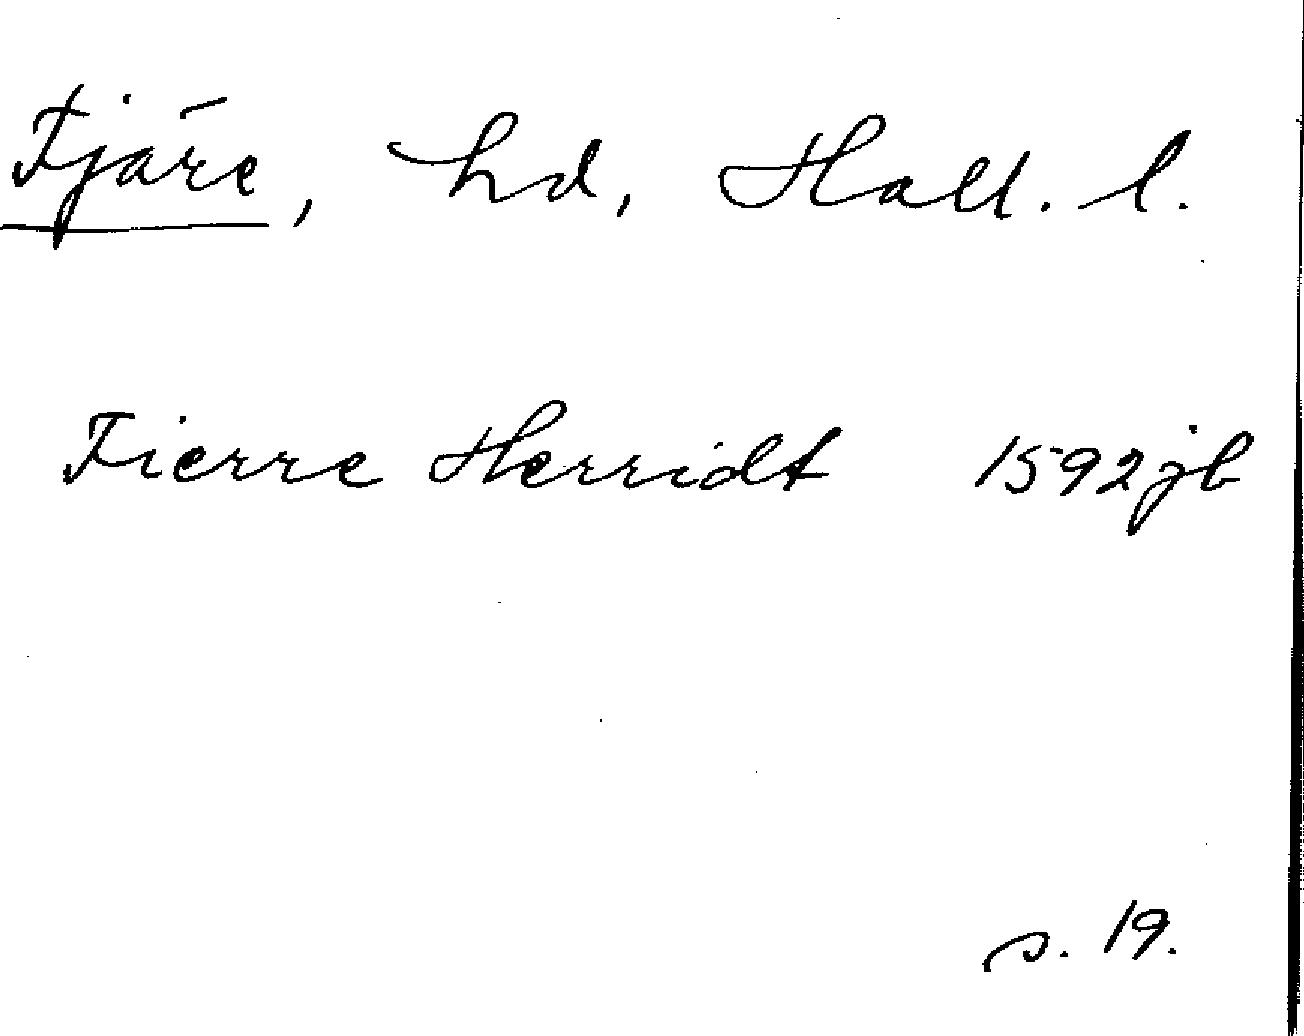 Fjäre, hd, Hall. l.
Fierre Herridt 1592 jb
s. 19.